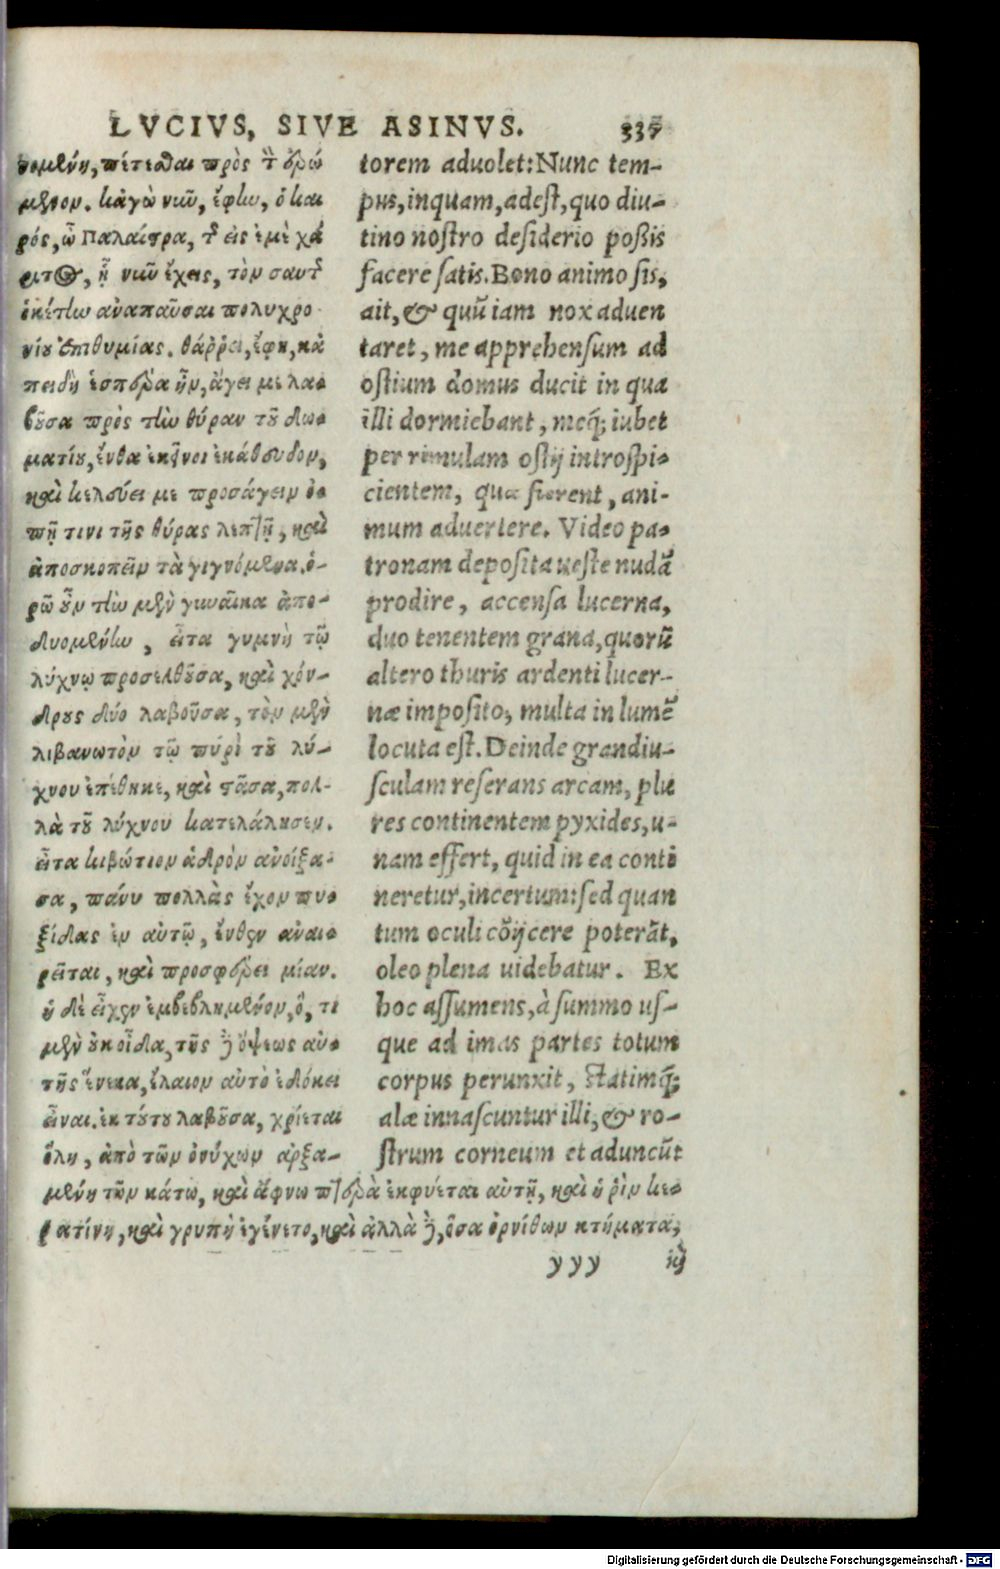 LVCIVS, SIVE ASINVS. 337
νομένη, πέτεσθαι πρὸς τ̀ ἐρώ
μενον. κἀγὼ νῦν, ἔφlω, ὁ και
ρός, ὦ Παλαίστρα, τ῀ εἰς ἐμὲ χά
ριτος, ᾗ νῦν ἔχεις, τὸν σαυτ῀
οἰκέτlω ἀναπαῦσαι πολυχρο
νίου ἐπιθυμίας. θάῤῥει, ἔφη, κἀ
πειδὴ ἑσπέρα ἦν, ἄγει με λα-
βοῦσα πρὸς τlὼ θύραν τοῦ δω-
ματίου, ἔνθα ἐκεῖνοι ἐκάθευδον,
καὶ κελεύει με προσάγειν ὀ-
πῇ τινι τῆς θύρας λεπτῇ, καὶ
ἀποσκοπεῖν τὰ γιγνόμενα. ὁ-
ρῶ οὖν τlὼ μὲν γυναῖκα ἀπο-
δυομένlω, εἶτα γυμνὴ τῷ
λύχνῳ προσελθοῦσα, καὶ χόν-
δρους δύο λαβοῦσα, τὸν μὲν
λιβανωτὸν τῷ πύρὶ τοῦ λύ-
χνου ἐπέθηκε, καὶ στᾶσα, πολ-
λὰ τοῦ λύχνου κατελάλησεν.
εἶτα κιβώτιον ἁδρὸν ἀνοίξα-
σα, πάνυ πολλὰς ἔχον πυ-
ξίδας ἐν αὐτῷ, ἔνθεν ἀναι-
ρεῖται, καὶ προσφέρει μίαν.
ἡ δὲ εἶχεν ἐμβεβλημένον, ὅ, τι
μὲν οὐκ οἶδα, τῆς δ̀ ὄψεως αὐ-
τῆς ἕνεκα, ἔλαιον αὐτὸ ἐδόκει
εἶναι. ἐκ τούτου λαβοῦσα, χρίεται
ὅλη, ἀπὸ τῶν ὀνύχων ἀρξα-
μένη τῶν κάτω, καὶ ἄφνω πτερὰ ἐκφύεται αὐτῇ, καὶ ἡ ῥὶν κε-
ρατίνη, καὶ γρυπὴ ἐγένετο, καὶ ἀλλὰ δ̀, ὅσα ὀρνίθων κτήματα,
torem aduolet: Nunc tem-
pus, inquam, adest, quo diu-
tino nostro desiderio poßis
facere satis. Bono animo sis,
ait, & quũ iam nox aduen
taret, me apprehensum ad
ostium domus ducit in qua
illi dormiebant, meq́; iubet
per rimulam ostij introspi-
cientem, quæ fierent, ani-
mum aduertere. Video pa-
tronam deposita ueste nudã
prodire, accensa lucerna,
duo tenentem grana, quorũ
altero thuris ardenti lucer-
næ imposito, multa in lumẽ
locuta est. Deinde grandiu-
sculam reserans arcam, plu
res continentem pyxides, u-
nam effert, quid in ea conti
neretur, incertum: sed quan
tum oculi cõijcere poterãt,
oleo plena uidebatur. Ex
hoc assumens, à summo us-
que ad imas partes totum
corpus perunxit, statimq́;
alæ innascuntur illi, & ro-
strum corneum et aduncũt
yyy κỳ
Digitalisierung gefördert durch die Deutsche Forschungsgemeinschaft - DFG